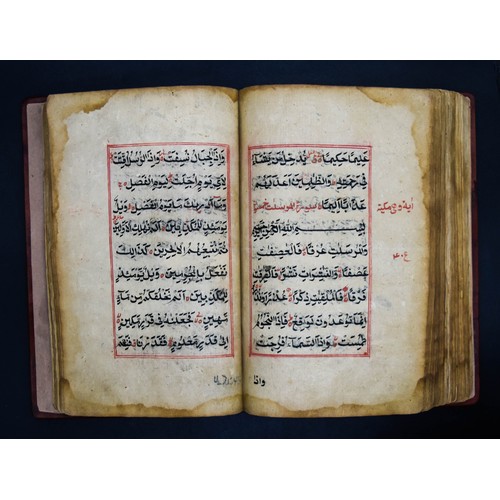 عليما حكيما يدخل من يشاء
في رحمته والظلمين اعد لهم
عذابا اليما سورة المرسلت
اية وهي مكية
بسم الله الرحمن الرحيم
والمرسلت عرفا فالعصفت
عصفا والنشرت نشرا فالفرقت
فرقا فالملقيت ذكرا عذرا او نذرا
انما توعدون لواقع فاذا النجوم
طمست واذا السماء فرجت
واذا
واذا الجبال نسفت واذا الرسل اقتت
لاي يوم اجلت ليوم الفصل
وما ادريك ما يوم الفصل ويل
يومئذ للمكذبين الم نهلك الاولين
ثم نتبعهم الاخرين كذلك
نفعل بالمجرمين ويل يومئذ
للمكذبين الم نخلقكم من ماء
مهين فجعلنه في قرار مكين
الى قدر معلوم فقدرنا فنعم